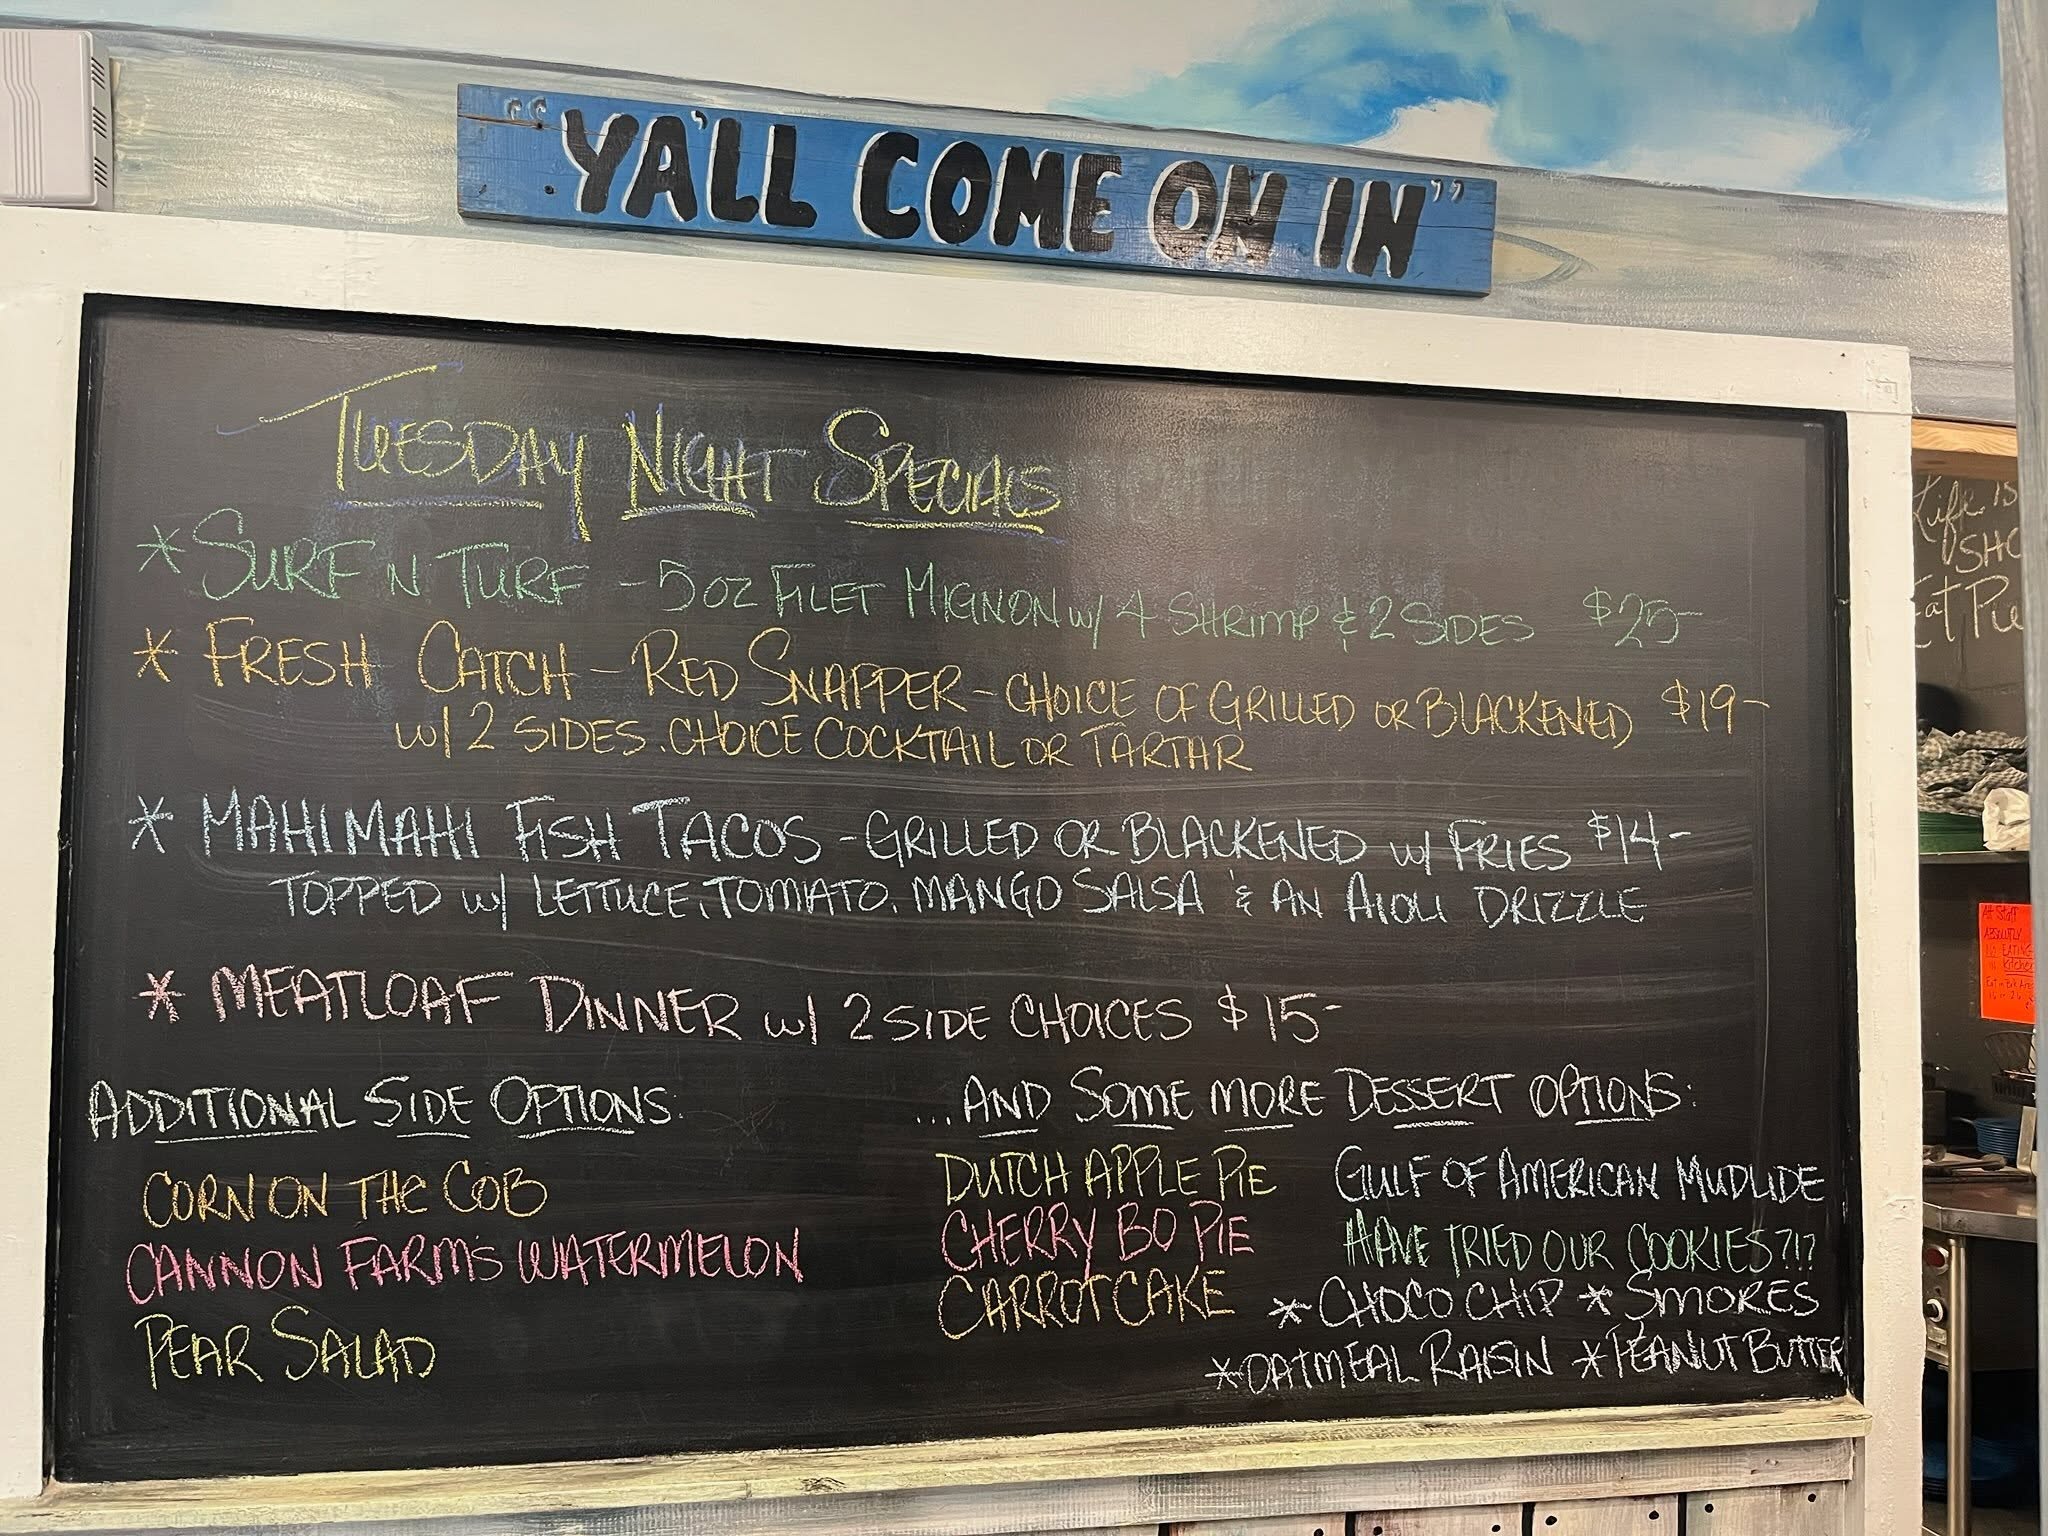 "YA'LL COME ON IN"
TUESDAY NIGHT SPECIALS
* SURF N TURF - 5 OZ FILET MIGNON w/ 4 SHRIMP & 2 SIDES $25-
* FRESH CATCH - RED SNAPPER - CHOICE OF GRILLED OR BLACKENED $19-
w/ 2 SIDES. CHOICE COCKTAIL OR TARTAR
* MAHI MAHI FISH TACOS - GRILLED OR BLACKENED w/ FRIES $14-
TOPPED w/ LETTUCE, TOMATO, MANGO SALSA & AN AIOLI DRIZZLE
* MEATLOAF DINNER w/ 2 SIDE CHOICES $15-
ADDITIONAL SIDE OPTIONS:
CORN ON THE COB
CANNON FARMS WATERMELON
PEAR SALAD
...AND SOME MORE DESSERT OPTIONS:
DUTCH APPLE PIE
CHERRY BO PIE
CARROT CAKE
GULF OF AMERICAN MUDLIDE
HAVE TRIED OUR COOKIES?!?
* CHOCO CHIP * SMORES
* OATMEAL RAISIN * PEANUT BUTTER
Life is
Eat Pie